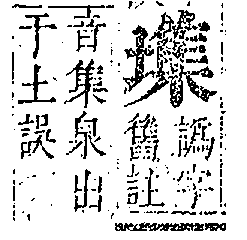 譌字
舊註
音集泉出
于土誤